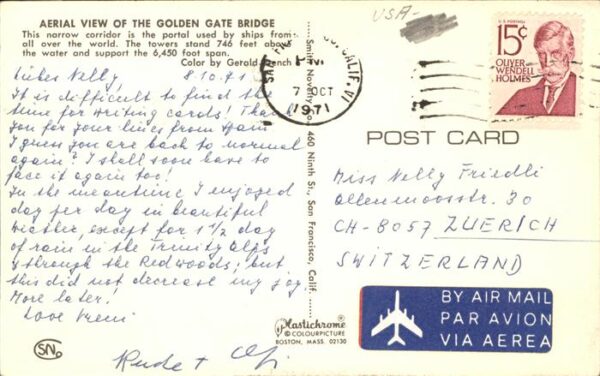 AERIAL VIEW OF THE GOLDEN GATE BRIDGE
This narrow corridor is the portal used by ships from
all over the world. The towers stand 746 feet above
the water and support the 6,450 foot span.
Color by Gerald French
Liebes Nelly! 8.10.71
It is difficult to find the
time for writing cards! Thank
you for your lines from
I guess you are back to normal
again? I shall soon have to
face it again too!
In the meantime I enjoyed
day per day in beautiful
weather, except for 1 1/2 day
of rain in the Trinity Alps
& through the Redwoods; but
this did not decrease my joy.
More later!
Love Vreni
SN
Smith Novelty Co., 460 Ninth St., San Francisco, Calif.
Plastichrome
COLOURPICTURE
BOSTON, MASS. 02130
USA-
SAN CALIF.
PM
7 OCT
1971
U.S. POSTAGE
15¢
OLIVER
WENDELL
HOLMES
POST CARD
Miss Nelly Friedli
Allenmoosstr. 30
CH-8057 ZUERICH
SWITZERLAND
BY AIR MAIL
PAR AVION
VIA AEREA